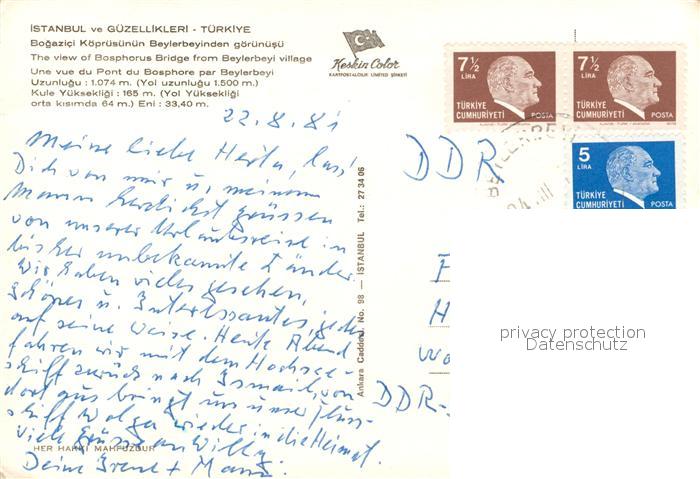 İSTANBUL ve GÜZELLİKLERİ - TÜRKİYE
Boğaziçi Köprüsünün Beylerbeyinden görünüşü
The view of Bosphorus Bridge from Beylerbeyi village
Une vue du Pont du Bosphore par Beylerbeyi
Uzunluğu : 1.074 m. (Yol uzunluğu 1.500 m.)
Kule Yüksekliği : 165 m. (Yol Yüksekliği
orta kısımda 64 m.) Eni : 33,40 m.
Keskin Color
KARTPOSTALCILIK LIMITED ŞİRKETİ
7½
LİRA
TÜRKİYE
CUMHURİYETİ
POSTA
7½
LİRA
TÜRKİYE
CUMHURİYETİ
POSTA
5
LİRA
TÜRKİYE
CUMHURİYETİ
POSTA
22.8.81
Meine liebe Herta, lass'
Dich von mir u. meinem
Mann herzlichst grüssen
von unserer Urlaubsreise in
bisher unbekannte Länder.
Wir haben vieles gesehen,
Schönes u. Interessantes, jedes
auf seine Weise. Heute Abend
fahren wir mit dem Hochsee-
schiff zurück nach Ismail, von
dort aus bringt uns unser Fluss-
schiff Wolga wieder in die Heimat.
Viele Grüsse an Willy
Deine Irene + Mann.
HER HAKKI MAHFUZDUR
Ankara Caddesi, No. 98 — İSTANBUL Tel.: 27 34 06
DDR
F
H
Wo
DDR-
privacy protection
Datenschutz